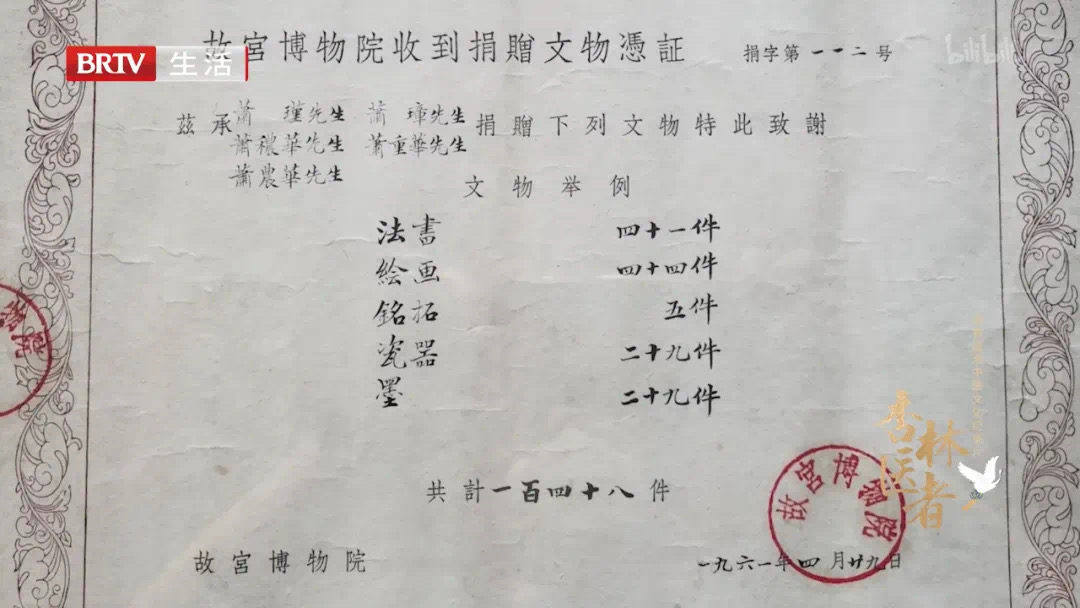 BRTV 生活
故宮博物院收到捐贈文物憑証
捐字第一一二号
bilibili
茲承
蕭 瑾先生 蕭 璋先生
蕭穠華先生 蕭重華先生
蕭農華先生
捐贈下列文物特此致謝
文物举例
法書 四十一件
絵画 四十四件
銘拓 五件
瓷器 二十九件
墨 二十九件
共計一百四十八件
故宮博物院
一九六一年四月廿九日
故宮博物院
物院
杏林医者